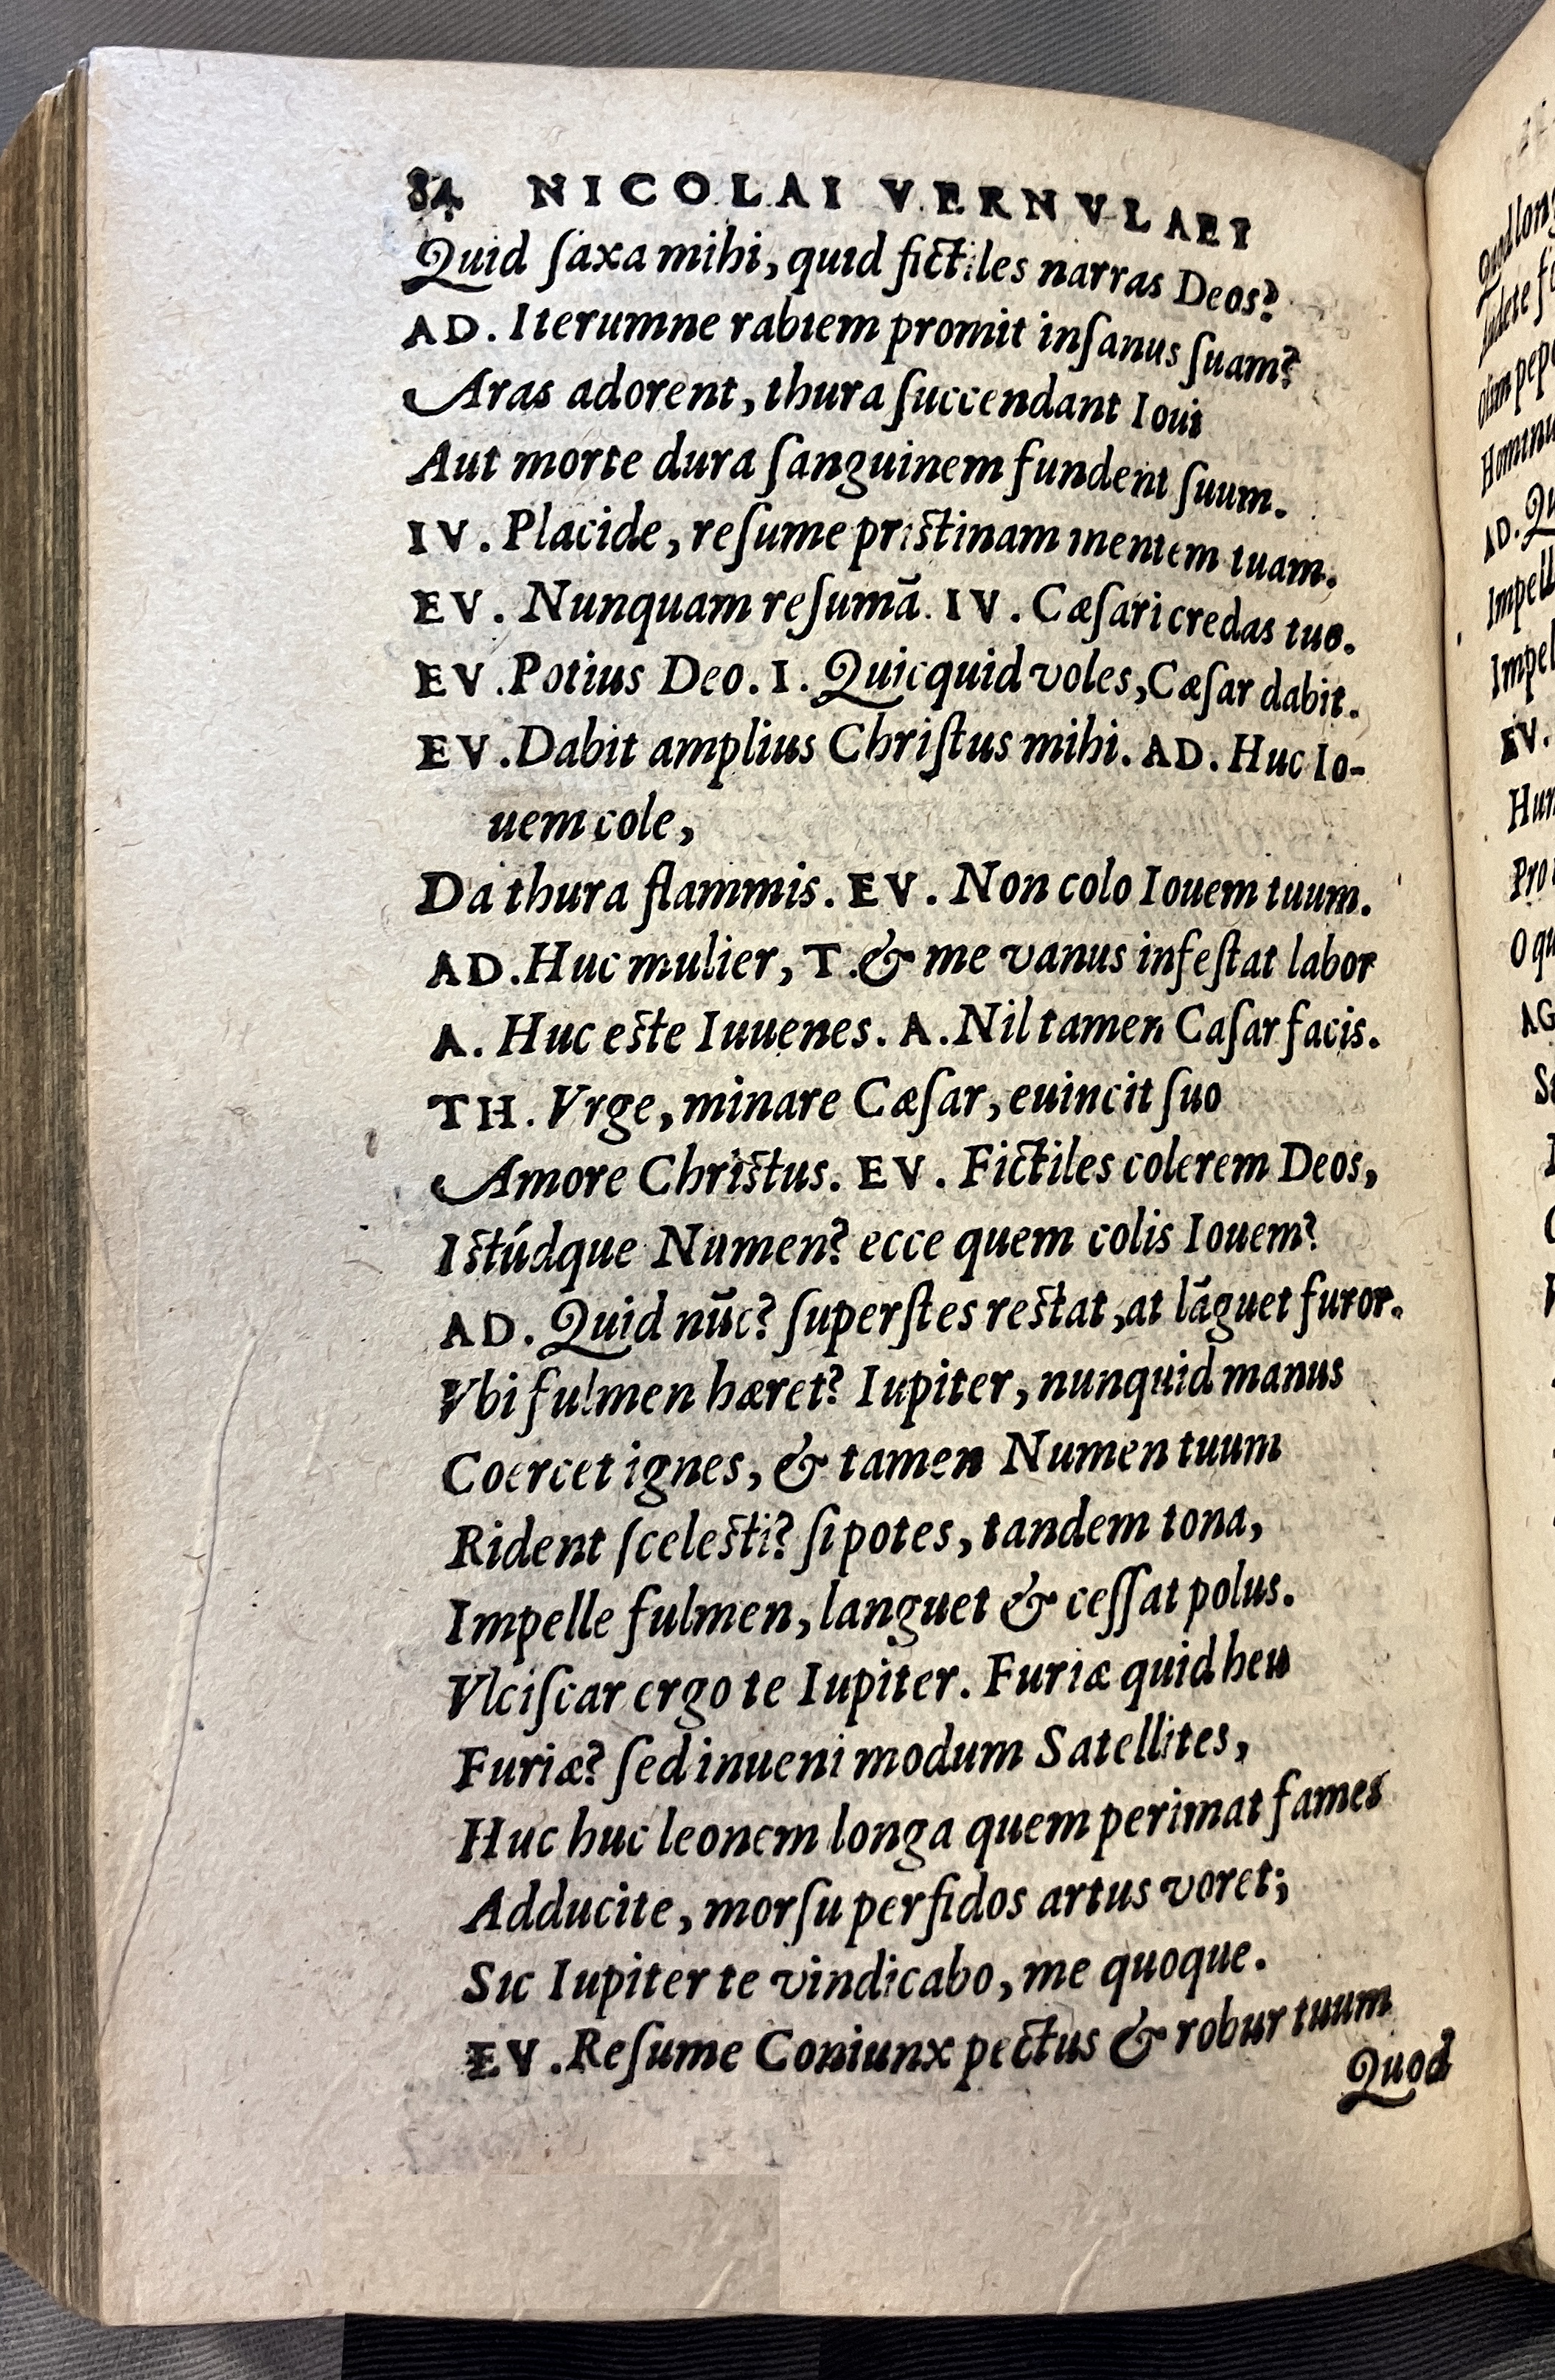 84 NICOLAI VERNVLAEI
Quid ſaxa mihi, quid fictiles narras Deos?
AD. Iterumne rabiem promit inſanus ſuam?
Aras adorent, thura ſuccendant Ioui
Aut morte dura ſanguinem fundent ſuum.
IV. Placide, reſume priſtinam mentem tuam.
EV. Nunquam reſumā. IV. Cæſari credas tuo.
EV. Potius Deo. I. Quicquid voles, Cæſar dabit.
EV. Dabit amplius Chriſtus mihi. AD. Huc Io-
uem cole,
Da thura flammis. EV. Non colo Iouem tuum.
AD. Huc mulier, T. & me vanus infeſtat labor
A. Huc eſte Iuuenes. A. Nil tamen Caſar facis.
TH. Vrge, minare Cæſar, euincit ſuo
Amore Chriſtus. EV. Fictiles colerem Deos,
Iſtúdque Numen? ecce quem colis Iouem?
AD. Quid nūc? ſuperſtes reſtat, at lāguet furor.
Vbi fulmen hæret? Iupiter, nunquid manus
Coercet ignes, & tamen Numen tuum
Rident ſceleſti? ſi potes, tandem tona,
Impelle fulmen, languet & ceſſat polus.
Vlciſcar ergo te Iupiter. Furiæ quid heu
Furiæ? ſed inueni modum Satellites,
Huc huc leonem longa quem perimat fames
Adducite, morſu perfidos artus voret;
Sic Iupiter te vindicabo, me quoque.
EV. Reſume Coniunx pectus & robur tuum
Quod